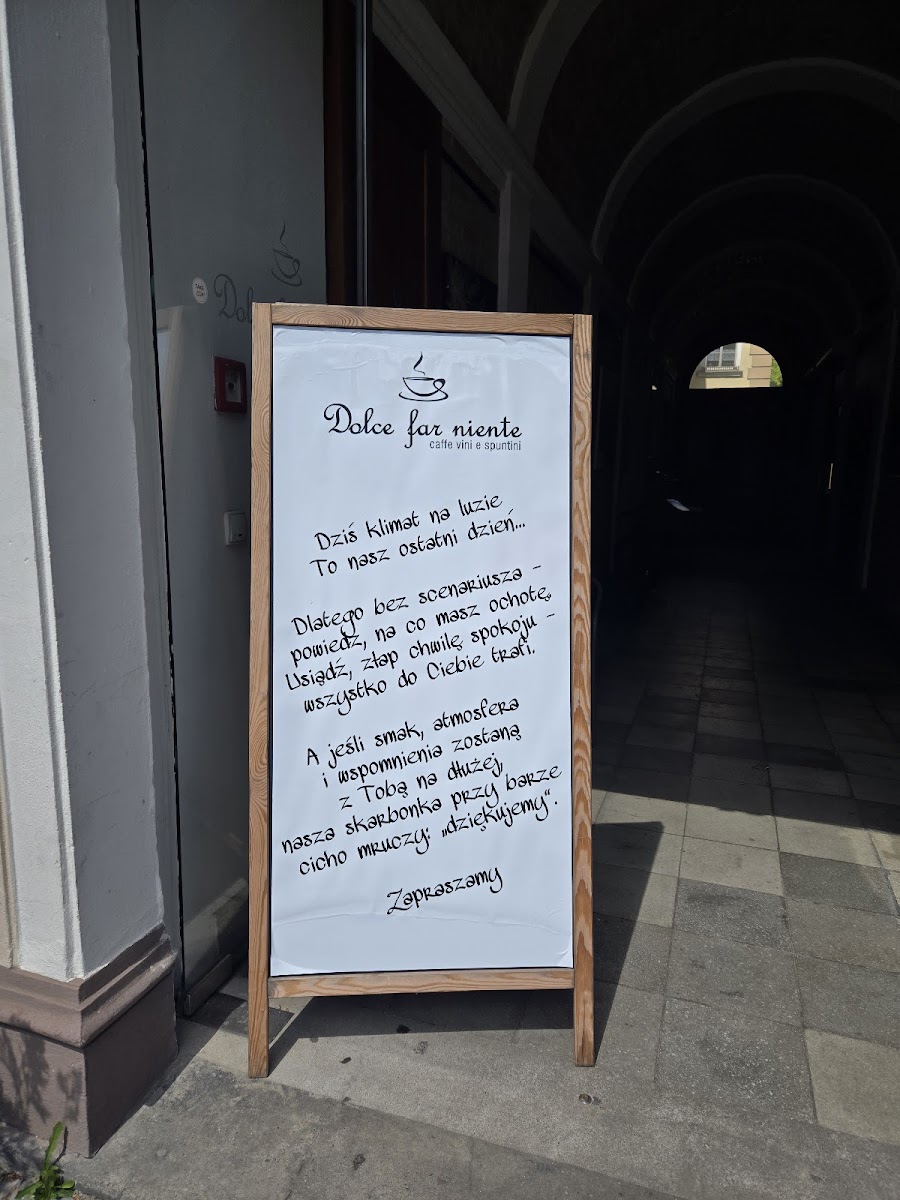 Dolce far niente
caffe vini e spuntini
Dziś klimat na luzie
To nasz ostatni dzień...
Dlatego bez scenariusza -
powiedz, na co masz ochotę.
Usiądź, złap chwilę spokoju -
wszystko do Ciebie trafi.
A jeśli smak, atmosfera
i wspomnienia zostaną
z Tobą na dłużej,
nasza skarbonka przy barze
cicho mruczy: „dziękujemy”.
Zapraszamy